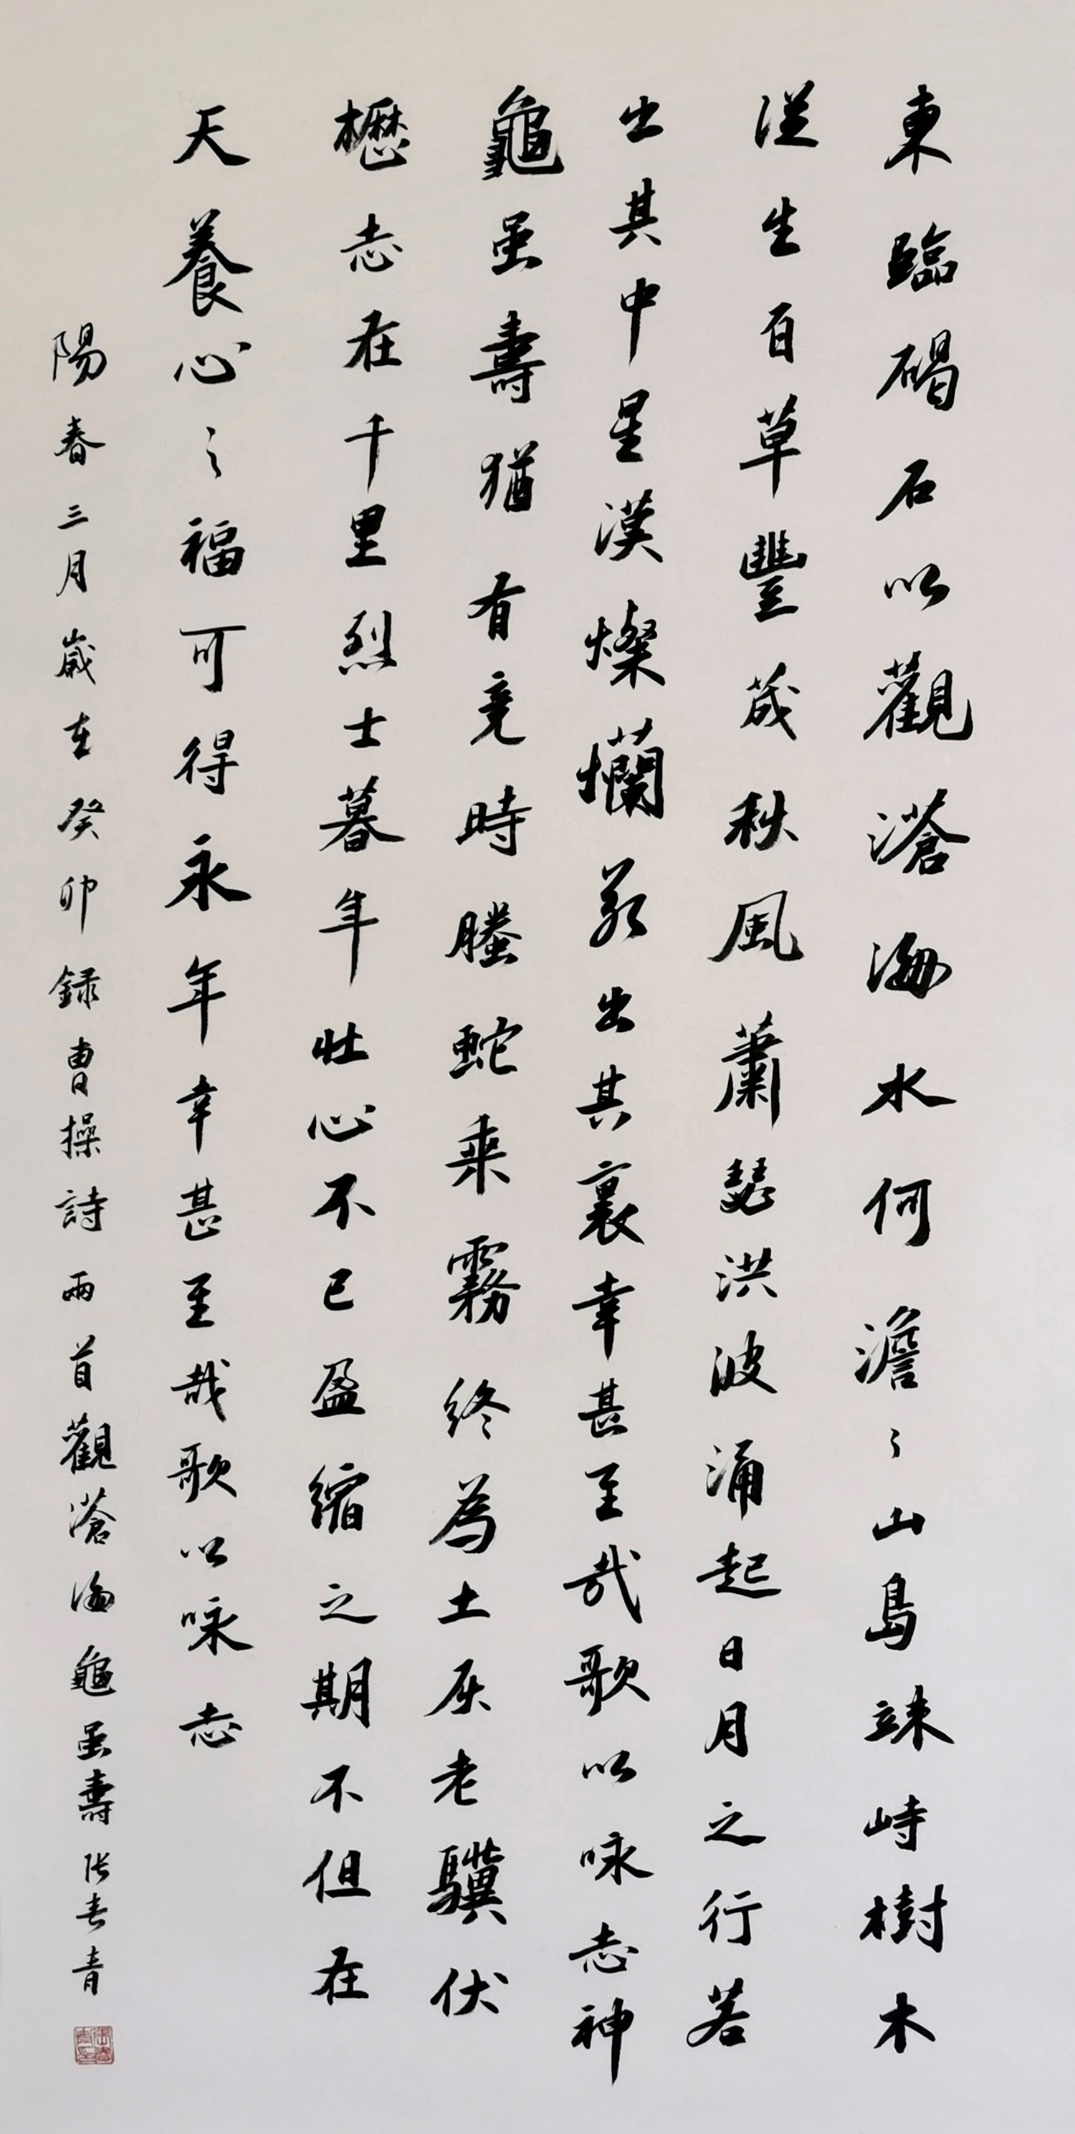 東臨碣石以觀滄海水何澹〻山島竦峙樹木
從生百草豐茂秋風蕭瑟洪波涌起日月之行若
出其中星漢燦爛若出其裏幸甚至哉歌以咏志神
龜虽壽猶有竟時螣蛇乘霧終為土灰老驥伏
櫪志在千里烈士暮年壯心不已盈縮之期不但在
天養心之福可得永年幸甚至哉歌以咏志
陽春三月歲在癸卯録曹操詩兩首觀滄海龜虽壽张春青